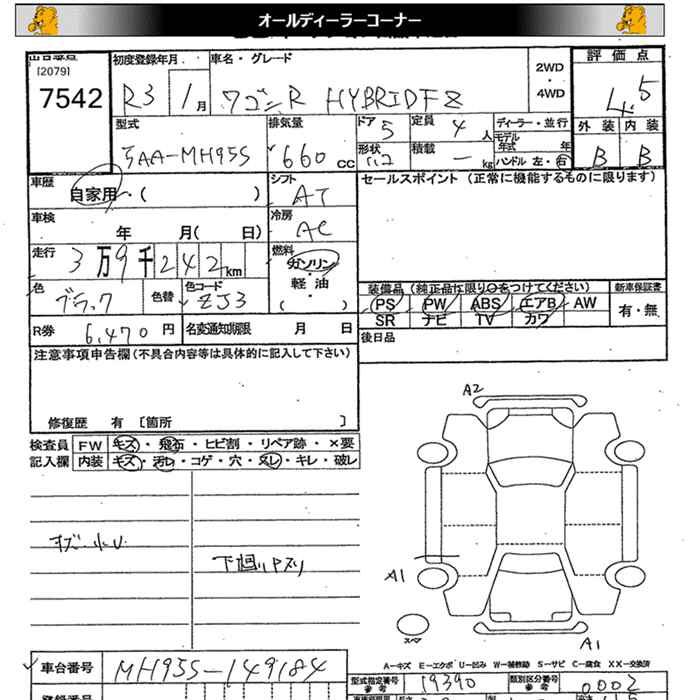 オールディーラーコーナー
[2079]
7542
初度登録年月
R3 1月
車名・グレード
ワゴンR HYBRIDFZ
2WD
・
4WD
評価点
4.5
外装 内装
B B
型式
5AA-MH95S
排気量
660 CC
ドア 5
形状
定員 4 人
積載 - kg
ディーラー・並行
モデル
年式 年
ハンドル 左・右
車歴
自家用・( )
シフト
AT
セールスポイント (正常に機能するものに限ります)
車検
年 月( 日)
冷房
AC
走行
3万9千242km
燃料
ガソリン
・
軽油
・
( )
色
ブラック
色替
色コード
ZJ3
装備品(純正品に限り○をつけてください)
新車保証書
PS PW ABS エアB AW
SR ナビ TV カワ
有・無
R券 6,470円
名変通知期限 月 日
後日品
注意事項申告欄(不具合内容等は具体的に記入して下さい)
修復歴 有 [箇所 ]
検査員
記入欄
FW キズ・飛石・ヒビ割・リペア跡・×要
内装 キズ・汚レ・コゲ・穴・スレ・キレ・破レ
下廻りサビ
A2
A1
A1
スペア
A-キズ E-エクボ U-凹み W-補修跡 S-サビ C-腐食 XX-交換済
車台番号
MH95S-149184
型式指定番号
参考
19390
類別区分番号
参考
0002
登録番号